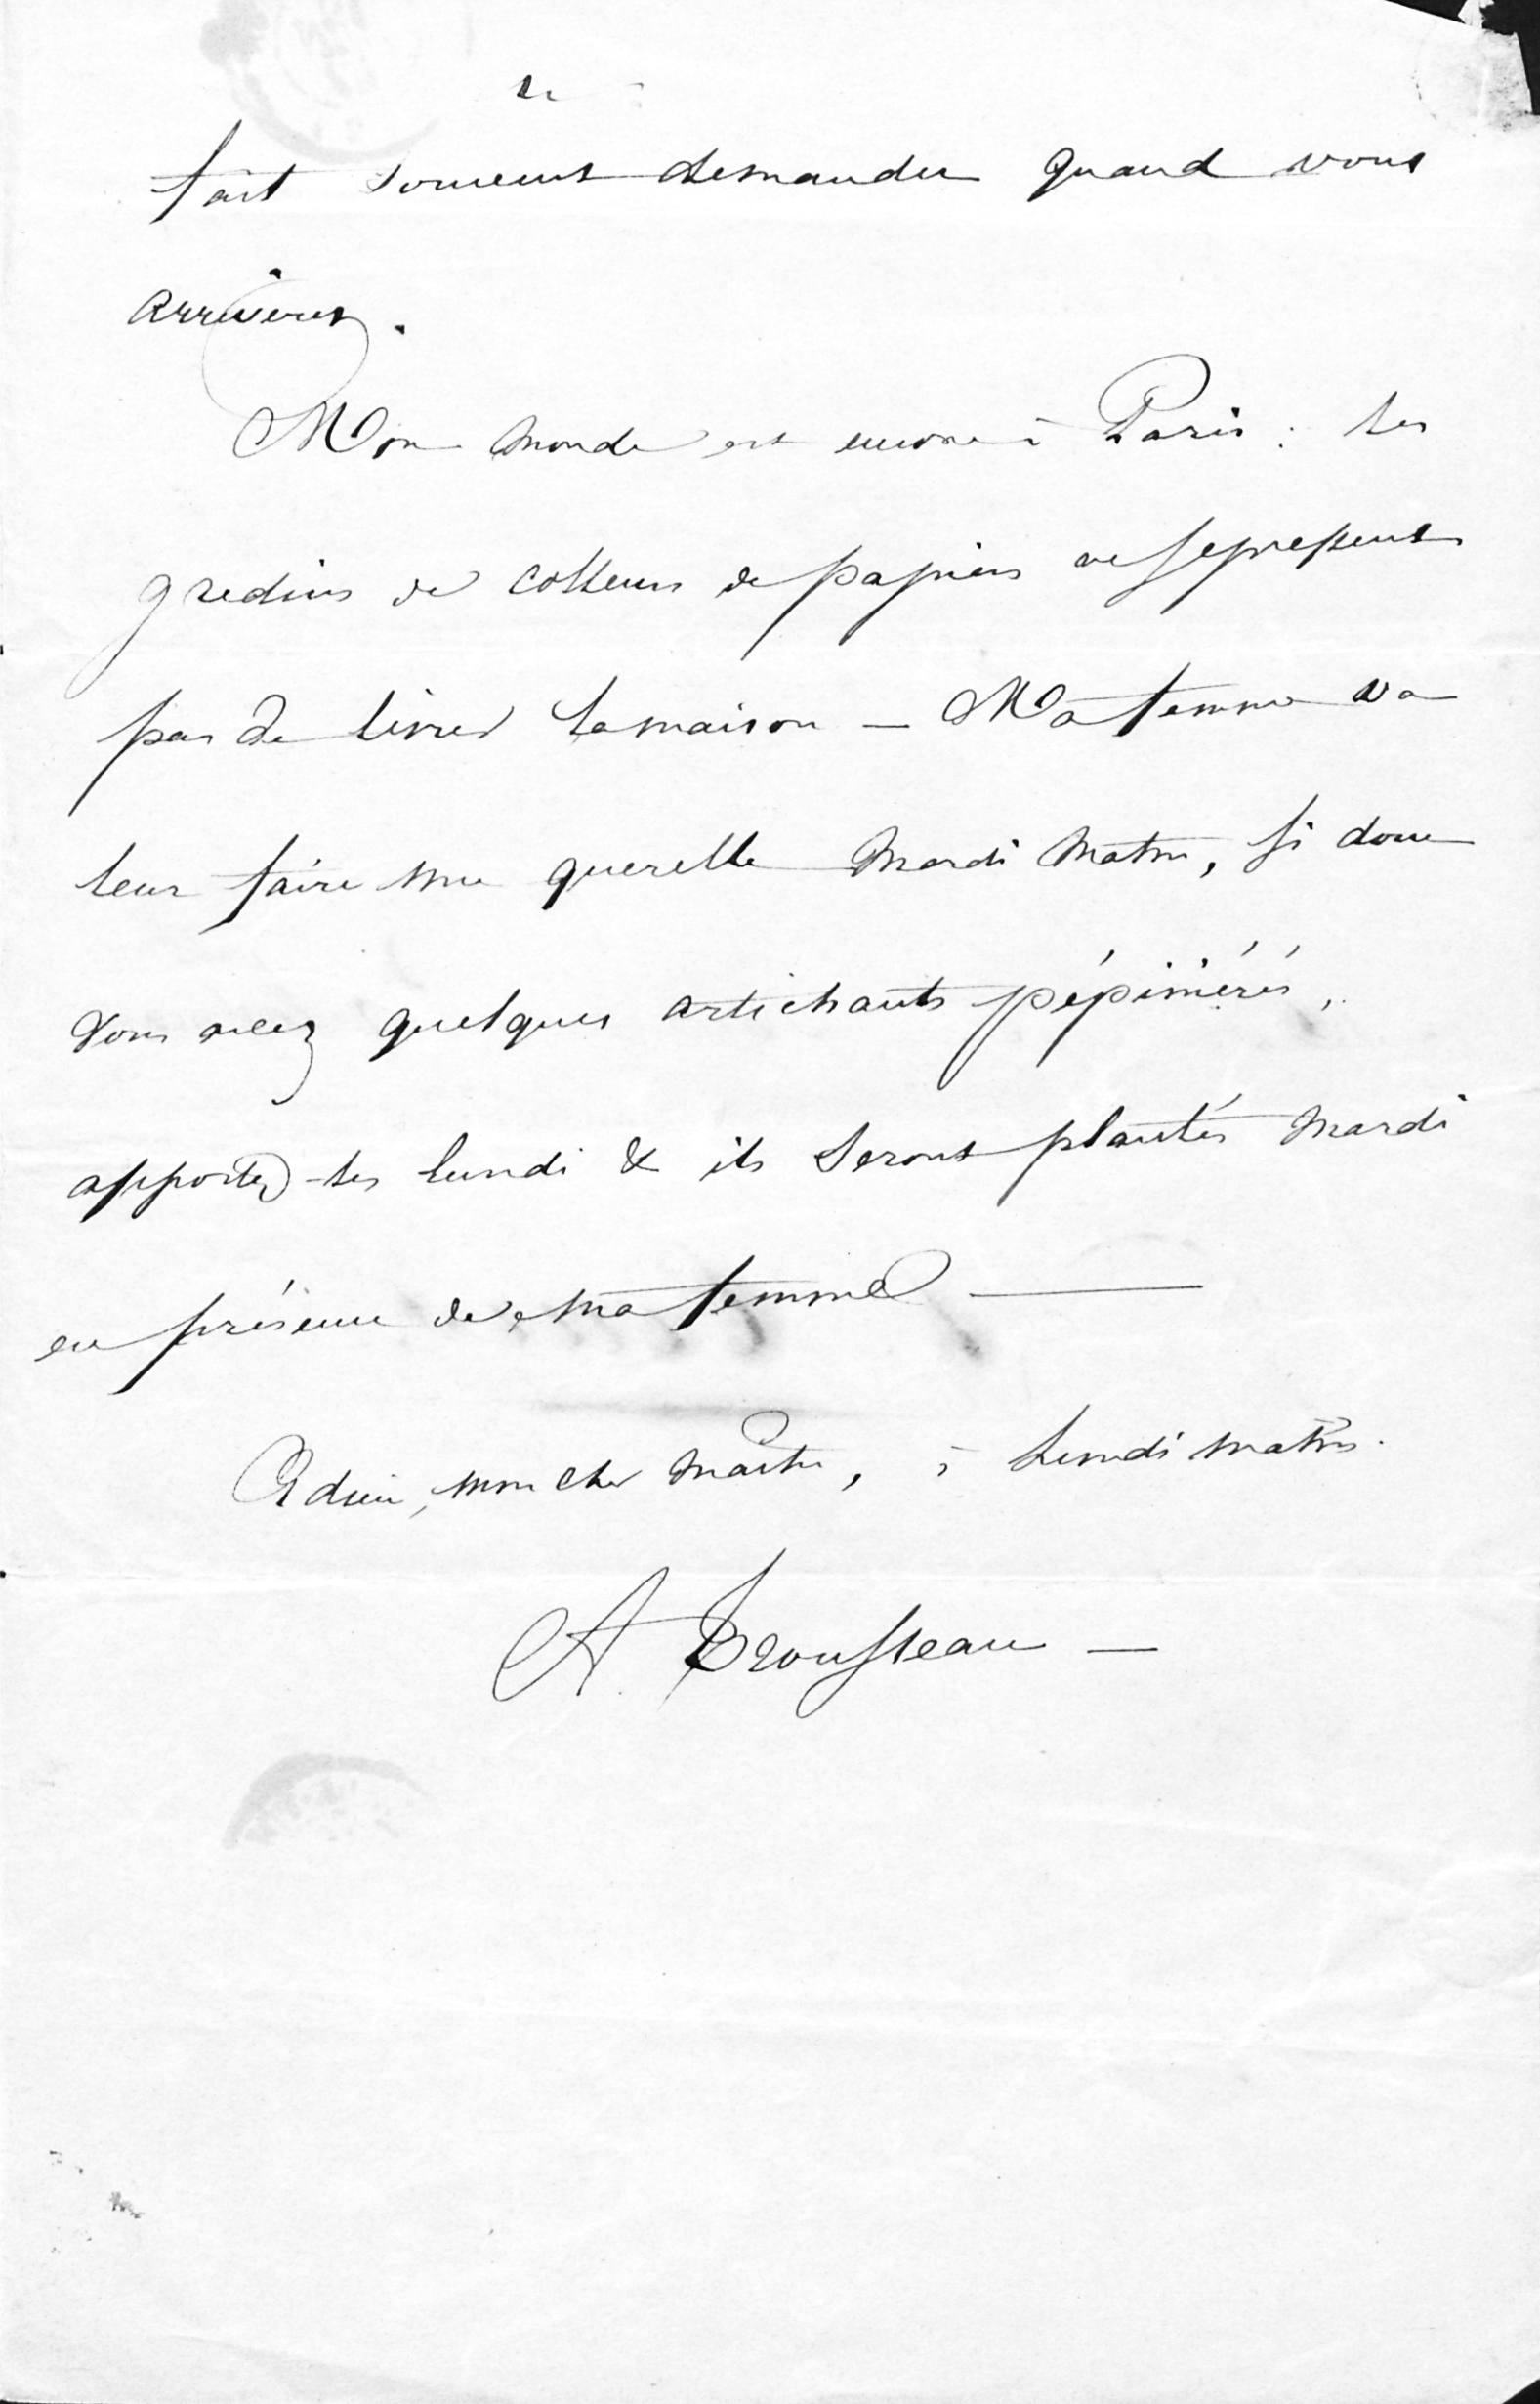 fait souvent demander quand vous
arriverez.
Mon monde est encore à Paris : les
gredins de colleurs de papiers ne se pressent
pas de livrer la maison — Ma femme va
leur faire une querelle mardi matin, si donc
vous avez quelques artichauts pépiniérés,
apportez-les lundi & ils seront plantés mardi
en présence de ma femme —
Adieu, mon cher maître, à lundi matin.
A Trousseau —